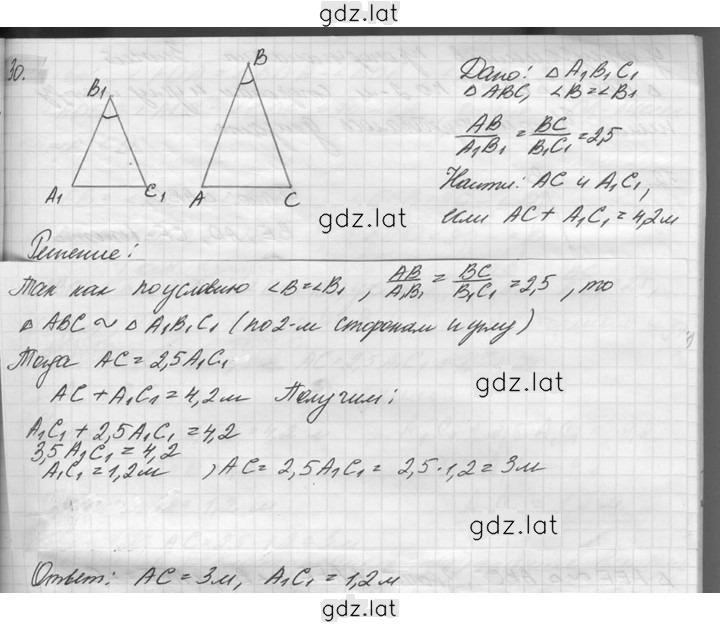 gdz.lat
30.
B
B₁
A₁ C₁ A C
Дано: △ A₁B₁C₁
△ ABC, ∠B = ∠B₁
AB/A₁B₁ = BC/B₁C₁ = 2,5
Найти: AC и A₁C₁,
если AC + A₁C₁ = 4,2 м
gdz.lat
Решение:
Так как по условию ∠B = ∠B₁, AB/A₁B₁ = BC/B₁C₁ = 2,5, то
△ ABC ~ △ A₁B₁C₁ (по 2-м сторонам и углу)
Тогда AC = 2,5 A₁C₁
gdz.lat
AC + A₁C₁ = 4,2 м Получим:
A₁C₁ + 2,5 A₁C₁ = 4,2
3,5 A₁C₁ = 4,2
A₁C₁ = 1,2 м , AC = 2,5 A₁C₁ = 2,5 · 1,2 = 3 м
gdz.lat
Ответ: AC = 3 м, A₁C₁ = 1,2 м
gdz.lat